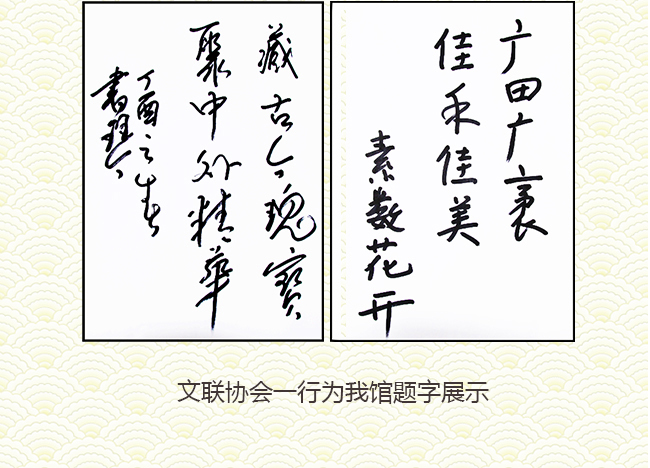 藏古今瑰寶
聚中外精華
丁酉之春
書
广田广
佳禾佳美
素数花开
文联协会一行为我馆题字展示